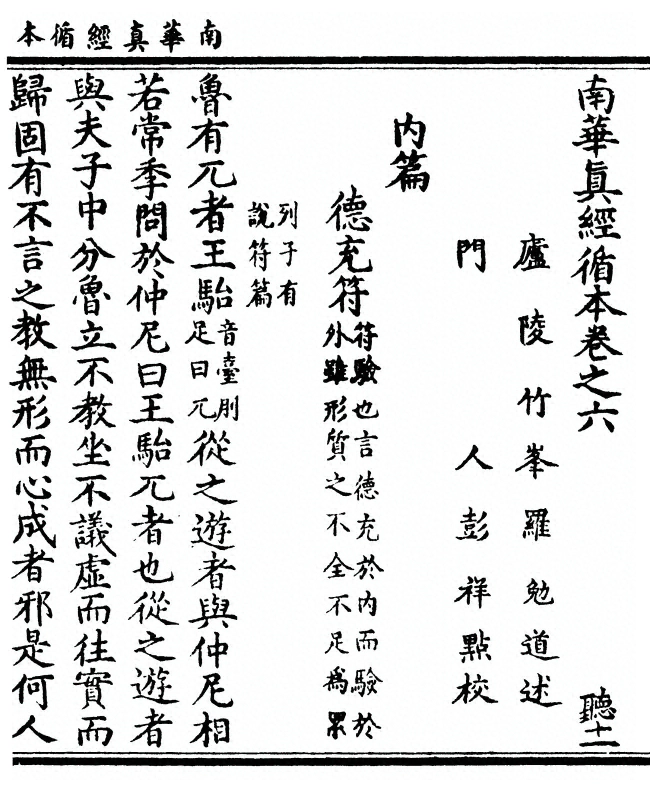 南華真經循本
南華眞經循本卷之六　聽十一
廬陵竹峯羅勉道述
門人彭祥點校
内篇
德充符符驗也言德充於内而驗於
外雖形質之不全不足爲累
列子有
說符篇
魯有兀者王駘音臺刖
足曰兀從之遊者與仲尼相
若常季問於仲尼曰王駘兀者也從之遊者
與夫子中分魯立不教坐不議虛而往實而
歸固有不言之教無形而心成者邪是何人